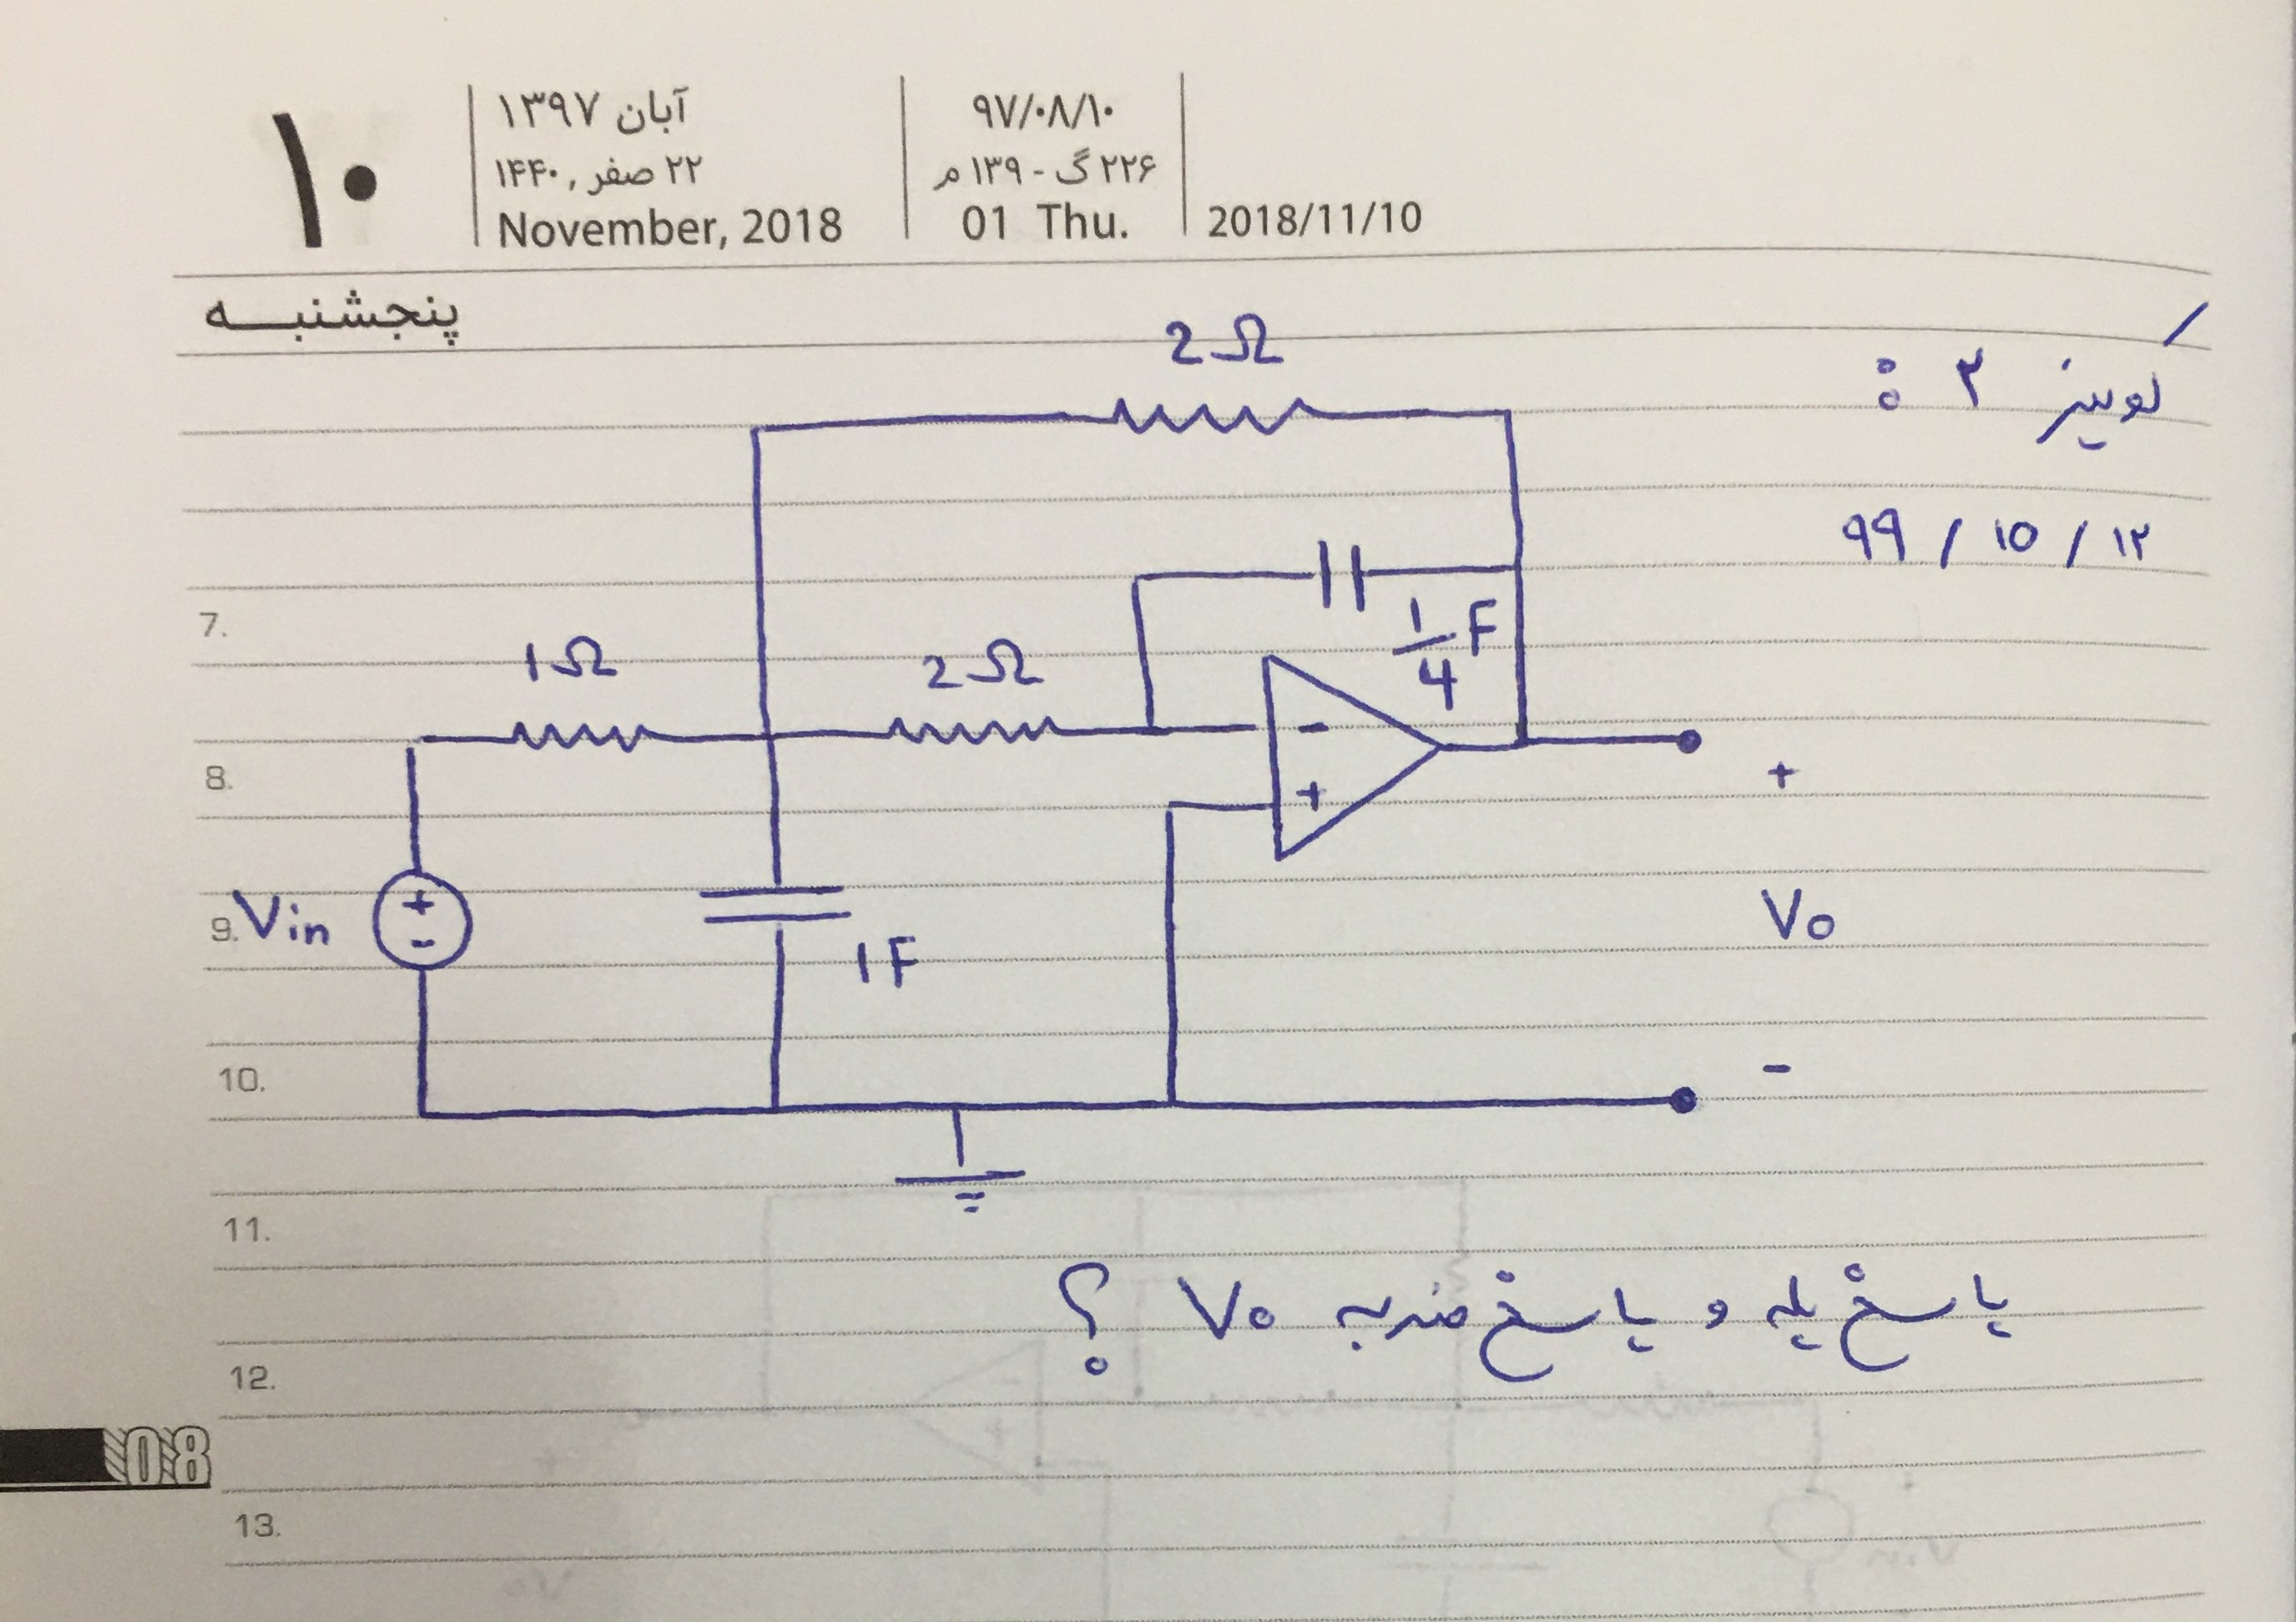 ۱۰
آبان ۱۳۹۷
۲۲ صفر , ۱۴۴۰
November, 2018
۹۷/۰۸/۱۰
۲۲۶ گ - ۱۳۹ م
01 Thu.
2018/11/10
پنجشنبه
کوییز ۲ :
۹۹ / ۱۰ / ۱۲
2Ω
1/4 F
1Ω
2Ω
-
+
+
Vin
+
-
1F
Vo
-
پاسخ پله و پاسخ ضربه Vo ؟
7.
8.
9.
10.
11.
12.
13.
08